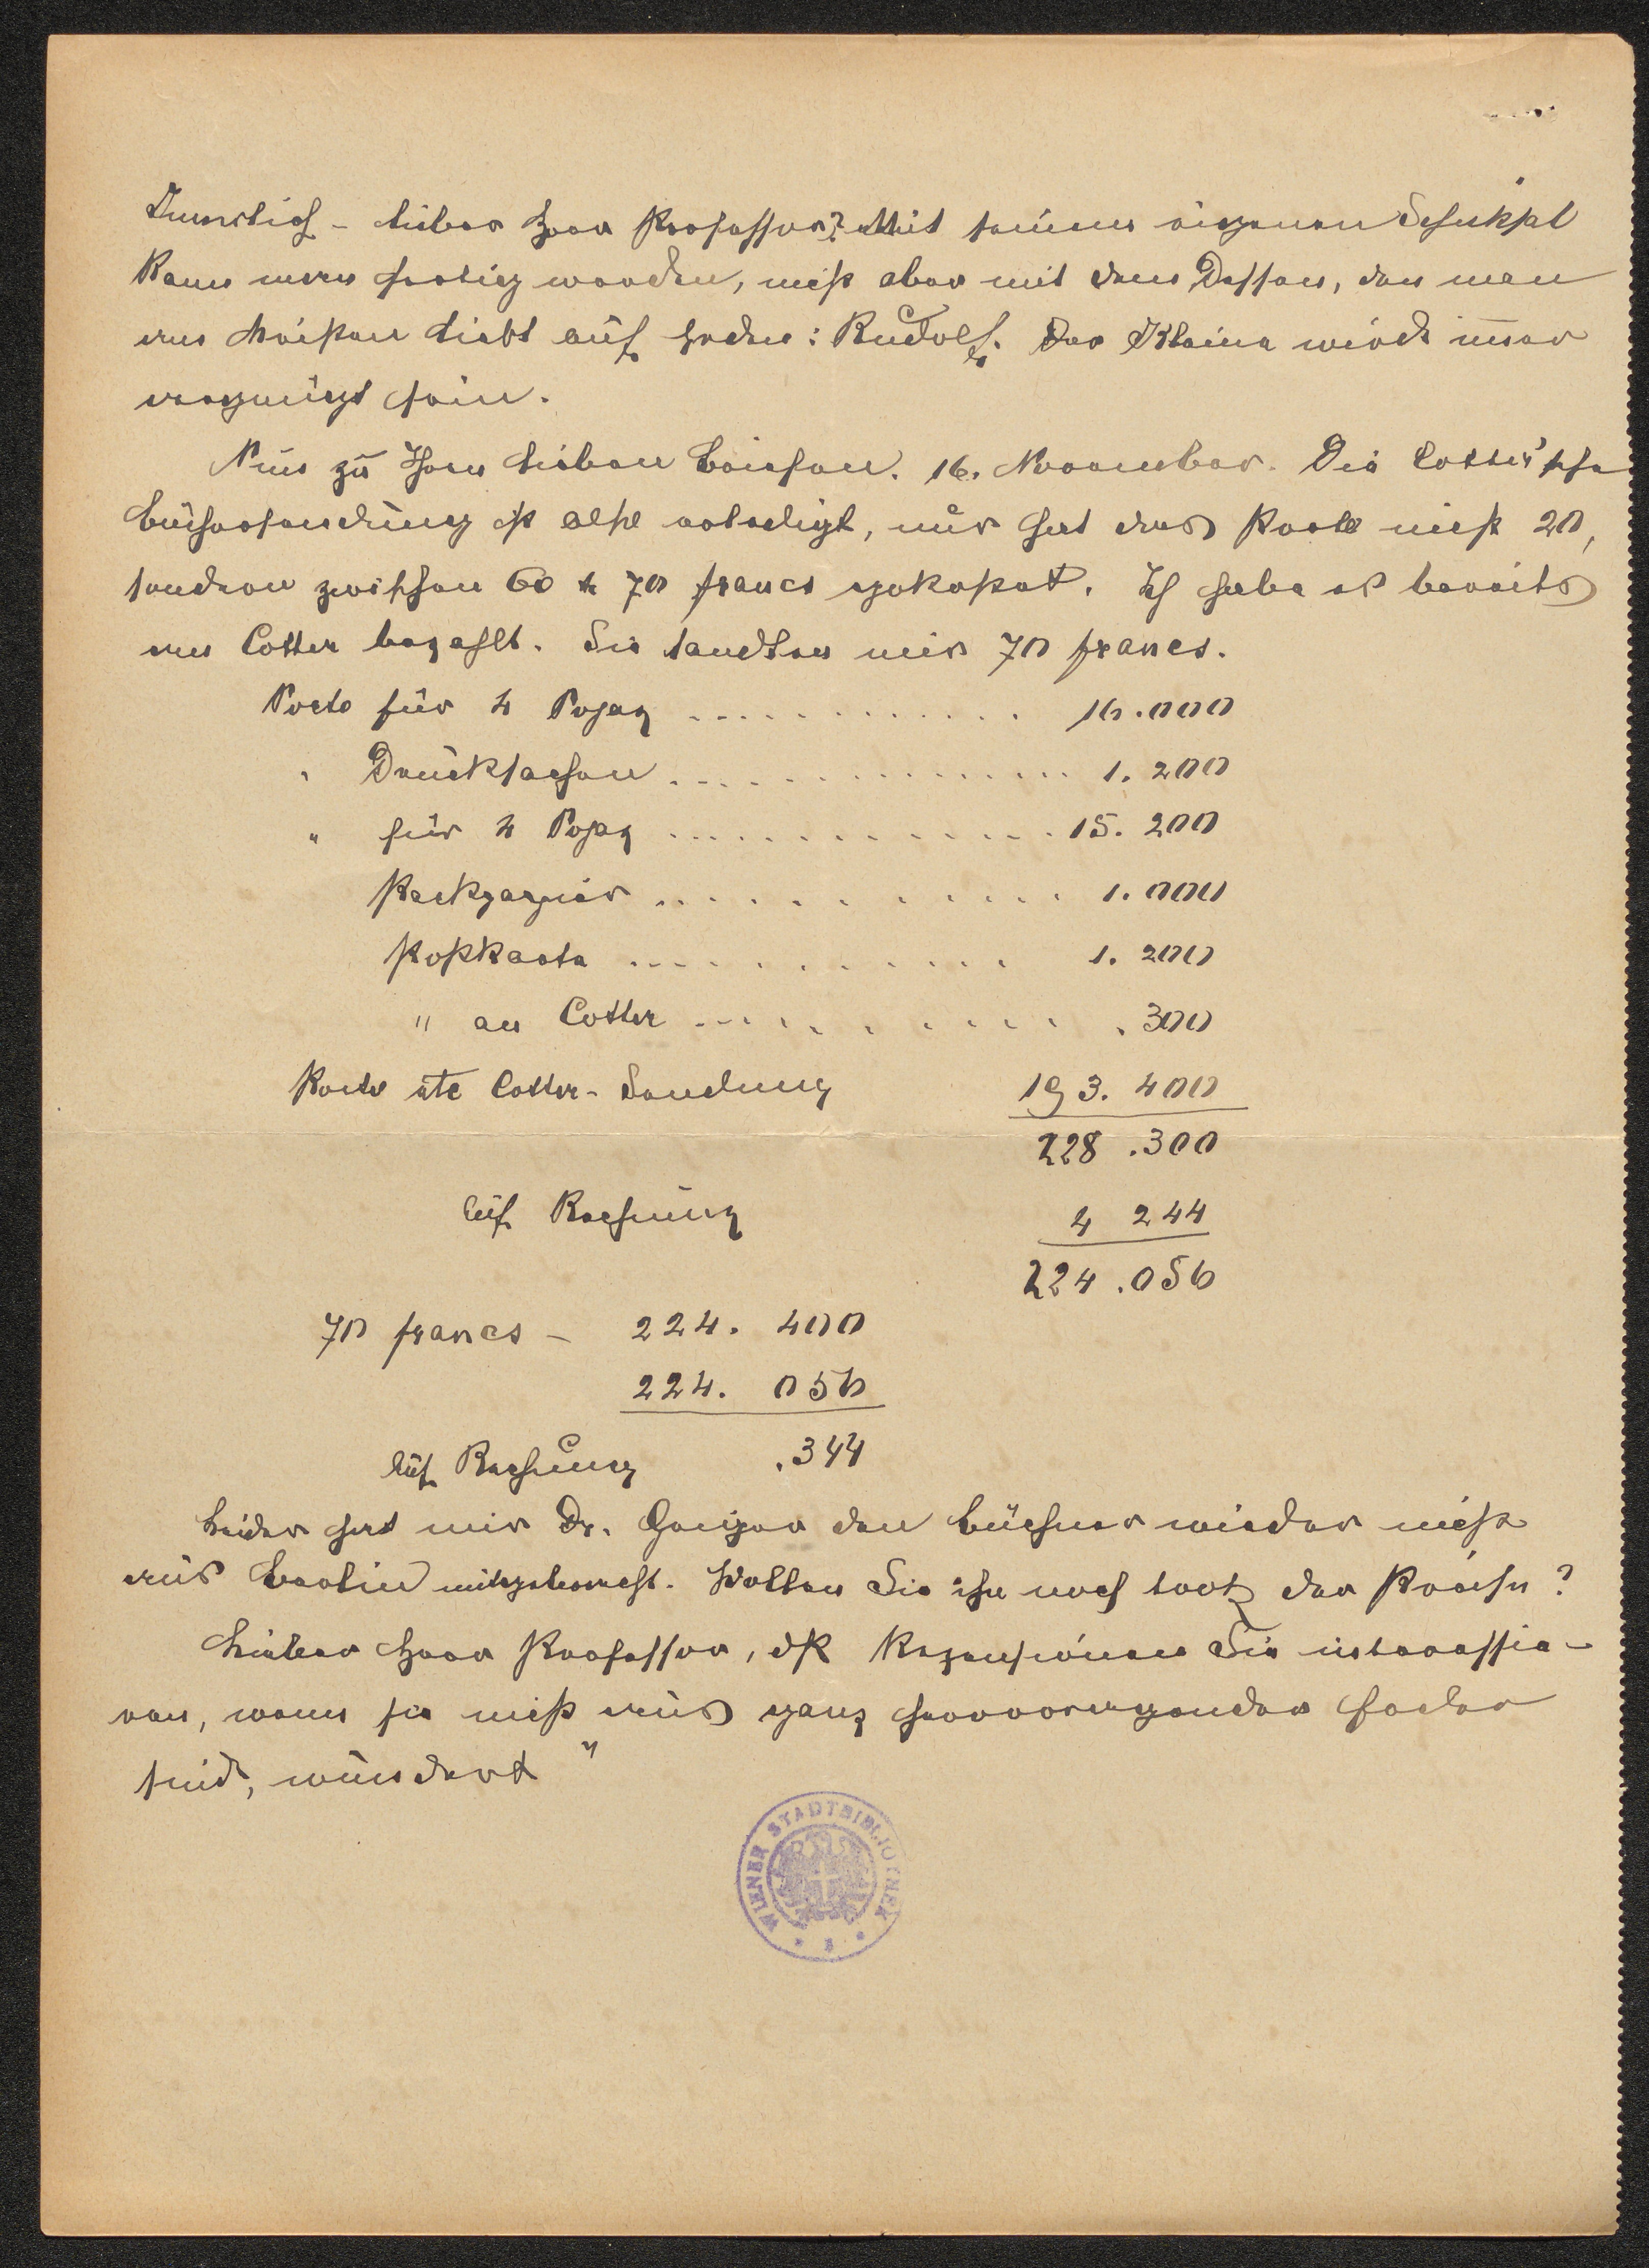 Lieber Herr Professor? Mit seinem eigenen Schicksal
kann man fertig werden, nicht aber mit dem Dessen, den man
am meisten liebt auf Erden: Rudolf. Der Kleine wird immer
vergnügt sein.
Nun zu Ihrem lieben Briefen. 16. November. Die Cotter'sche
Büchersendung ist also erledigt, nur hat das Porto nicht 20,
sondern zwischen 60 & 70 francs gekostet. Ich habe es bereits
an Cotter bezahlt. Sie sandten mir 70 francs.
Porto für 4 Pojaz ............ 16.000
" Drucksachen ............ 1.200
" für 4 Pojaz ............ 15.200
Packpapier ............ 1.000
Postkarte ............ 1.200
" an Cotter ............ .300
Porto Cotter-Sendung 193.400
228.300
auf Rechnung 4 244
224.056
70 francs - 224.400
224.056
auf Rechnung .344
Leider hat mir Dr. Geiger den Büchner wieder nicht
aus Berlin mitgebracht. Wollen Sie ihn noch trotz der Preise?
Lieber Herr Professor, dß Rezensionen Sie interessie-
ren, wenn sie nicht aus ganz hervorragender Feder
sind, wundert "
WIENER STADTBIBLIOTHEK